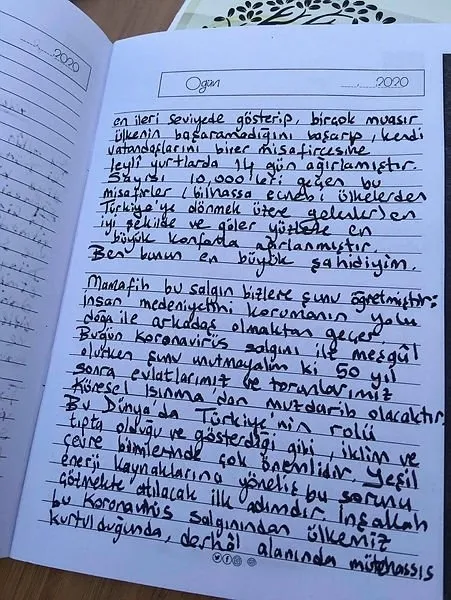 2020
Ogün
2020
en ileri seviyede gösterip, birçok muasır
ülkenin başaramadığını başarıp, kendi
vatandaşlarını birer misafircesine
leyli yurtlarda 14 gün ağırlamıştır.
Sayısı 10,000'leri geçen bu
misafirler (bilhassa ecnebi ülkelerden
Türkiye'ye dönmek üzere gelenler) en
iyi şekilde ve güler yüzle en
büyük konforla ağırlanmıştır.
Ben bunun en büyük şahidiyim.
Mamafih bu salgın bizlere şunu öğretmiştir:
İnsan medeniyetini korumanın yolu
doğa ile arkadaş olmaktan geçer.
Bugün Koronavirüs salgını ile meşgûl
olurken şunu unutmayalım ki 50 yıl
sonra evlatlarımız ve torunlarımız
Küresel Isınma'dan muzdarib olacaktır.
Bu Dünya'da Türkiye'nin rolü
tıpta olduğu ve gösterdiği gibi, iklim ve
çevre bilimlerinde çok önemlidir. Yeşil
enerji kaynaklarına yöneliş bu sorunu
çözmekte atılacak ilk adımdır. İnşallah
bu Koronavirüs salgınından ülkemiz
kurtulduğunda, derhâl alanında mütehassıs